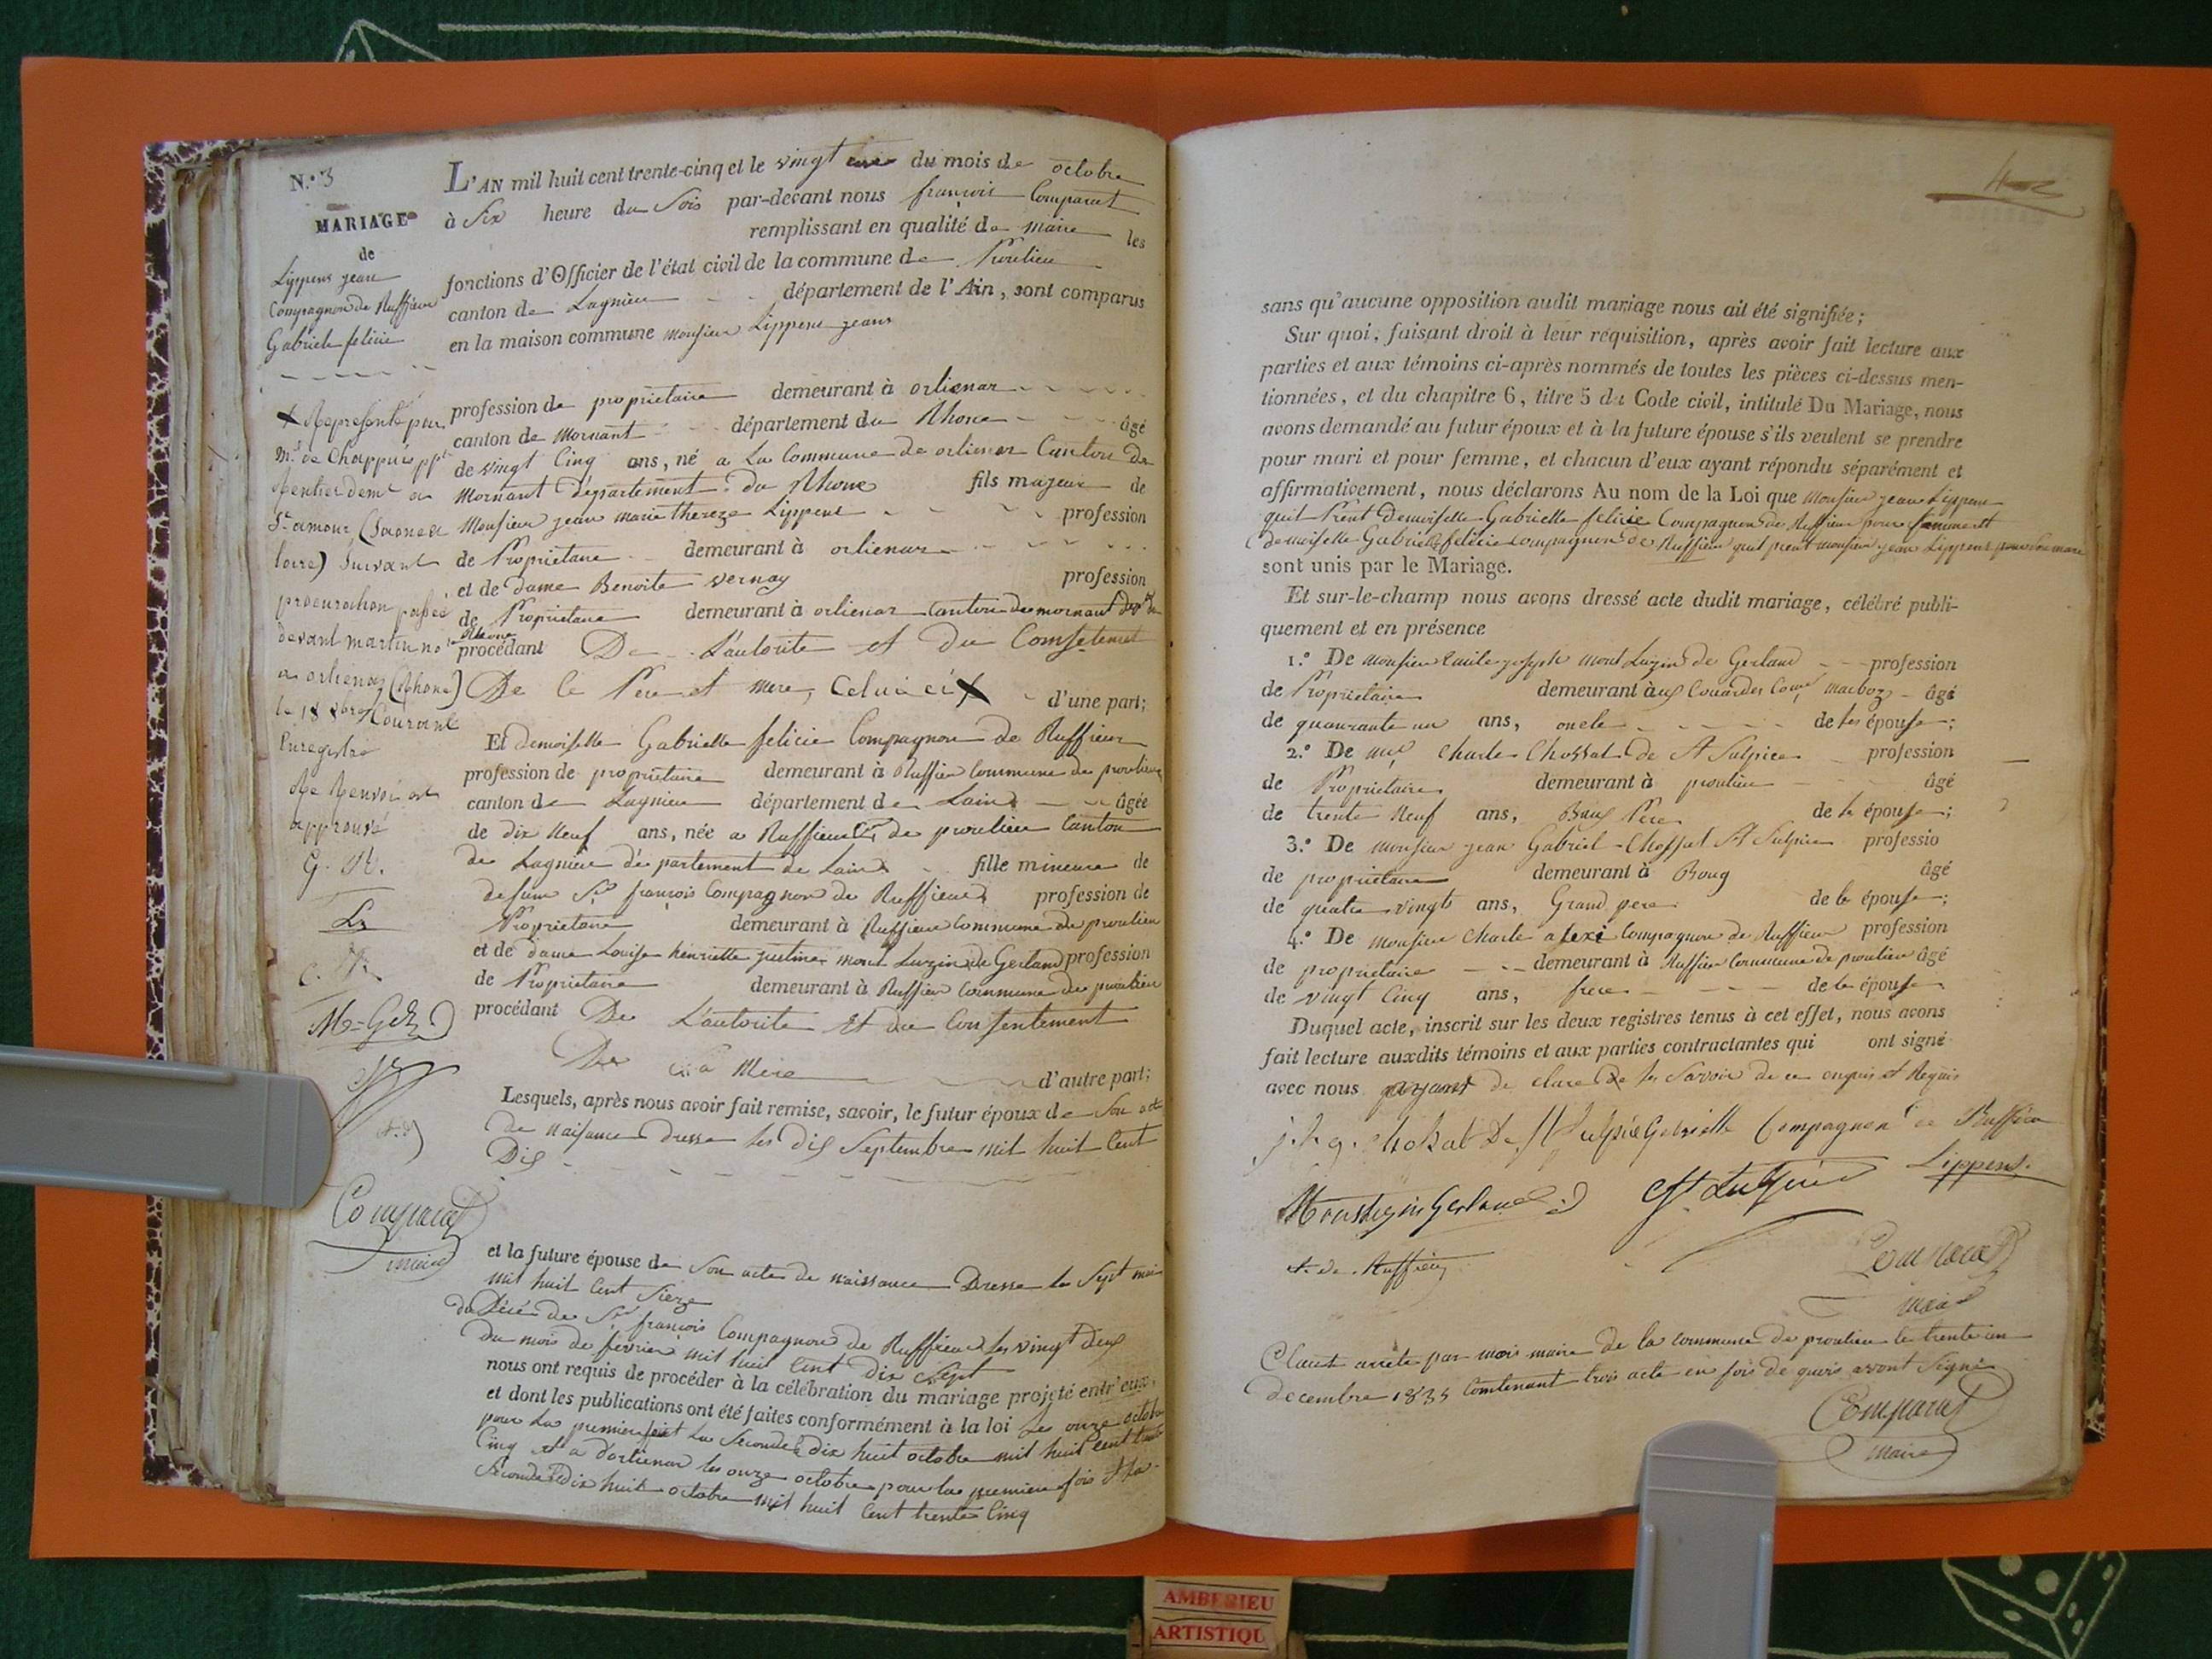 N.° 3
MARIAGE
de
Lippens jean
Compagnon de Ruffieu
Gabriele felicie
L'AN mil huit cent trente-cinq et le vingt du mois de octobre
à Six heure du Soir par-devant nous françois Comparat
remplissant en qualité de maire les
fonctions d'Officier de l'état civil de la commune de Proulieu
canton de Lagnieu département de l'Ain, sont comparus
en la maison commune monsieur Lippens jean
profession de proprietaire demeurant à orlienar
canton de Mornant département du Rhone âgé
de vingt Cinq ans, né a La Commune de orlienar Canton de
Mornant Département du Rhone fils majeur de
Monsieur jean marie thereze Lippens profession
de Proprietaire demeurant à orlienar
et de dame Benoite vernay profession
de Proprietaire demeurant à orlienar canton de mornant dept du
Rhone
procédant De L'autorite et du Comsetement
De le Pere et mere, Celui ci X d'une part;
X Représenté par
Mr de Chappuis ppre
Rentier demt a
St amour (Saone et
loire) Suivant
procuration passée
devant martin nore
a orlienas (Rhone)
le 18 8bre Courant
Enregistré
Re Renvoi est
approuvé
G. R.
L
C. R.
M=Gd
Comparat
maire
Et demoiselle Gabrielle felicie Compagnon de Ruffieu
profession de proprietaire demeurant à Ruffieu Commune de proulieu
canton de Lagnieu département de Lain âgée
de dix Neuf ans, née a Ruffieu Cne de proulieu Canton
de Lagnieu département de Lain fille mineure de
defunt Sr françois Compagnon de Ruffieu profession de
Proprietaire demeurant à Ruffieu Commune de proulieu
et de dame Louise henriette justine mont Luzin de Gerland profession
de Proprietaire demeurant à Ruffieu Commune de proulieu
procédant De L'autorite Et du Consentement
De la Mere d'autre part;
Lesquels, après nous avoir fait remise, savoir, le futur époux de Son acte
de Naisance Dresse les dix Septembre mil huit Cent
Dix
et la future épouse de Son acte de naissance Dresse le Sept mai
mil huit Cent Sieze
du Décé de Sr françois Compagnon de Ruffieu les vingt deux
du mois de fevrier mil huit Cent dix Sept
nous ont requis de procéder à la célébration du mariage projeté entr'eux,
et dont les publications ont été faites conformément à la loi Le onze octobre
pour La premiere et La Seconde dix huit octobre mil huit Cent trente
Cinq et a d'orlienar les onze octobre pour La premiere fois et La
Seconde dix huit octobre mil huit Cent trente Cinq
sans qu'aucune opposition audit mariage nous ait été signifiée;
Sur quoi, faisant droit à leur réquisition, après avoir fait lecture aux
parties et aux témoins ci-après nommés de toutes les pièces ci-dessus men-
tionnées, et du chapitre 6, titre 5 du Code civil, intitulé Du Mariage, nous
avons demandé au futur époux et à la future épouse s'ils veulent se prendre
pour mari et pour femme, et chacun d'eux ayant répondu séparément et
affirmativement, nous déclarons Au nom de la Loi que Monsieur jean Lippens
quil Prent Demoiselle Gabrielle felicie Compagnon de Ruffieu pour femme et
demoiselle Gabrielle felicie compagnon de Ruffieu quil prent monsieur jean Lippens pour Son mari
sont unis par le Mariage.
Et sur-le-champ nous avons dressé acte dudit mariage, célébré publi-
quement et en présence
1.° De monsieur Emile joseph mont Luzin de Gerland profession
de Proprietaire demeurant aux Couardes Coune marboz âgé
de quarante un ans, oncle de les épouse;
2.° De Charle Chossat de St Sulpice profession
de Proprietaire demeurant à proulieu âgé
de trente Neuf ans, Beau Pere de les épouse;
3.° De monsieur jean Gabriel Chossat St Sulpice professio
de proprietaire demeurant à Bourg âgé
de quatre vingts ans, Grand pere de le épouse;
4.° De monsieur Charle alexi Compagnon de Ruffieu profession
de proprietaire demeurant à Ruffieu Commune de proulieu âgé
de vingt Cinq ans, frere de le épouse
Duquel acte, inscrit sur les deux registres tenus à cet effet, nous avons
fait lecture auxdits témoins et aux parties contractantes qui ont signé
avec nous de clare de les Savoir de ce enquis et Requis
j. h. g. Chossat De St Sulpice Gabrielle Compagnon de Ruffieu
Montluzin Gerland St Sulpice Lippens.
de Ruffieu Comparat
maire
Claut arrete par mois maire de la commune de proulieu le trente un
decembre 1835 Contenant trois acte en fois de quois avont Signé
Comparat
maire
AMBERIEU
ARTISTIQU